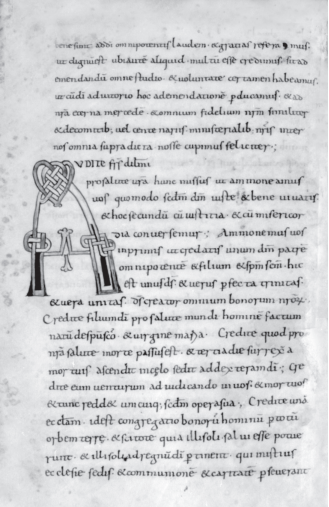 bene sunt addi omnipotentis laudem & gratias referamus
ut dignu est ubi aute aliquid multu esse credimus sit ad
emendandu omne studio & voluntate certamen habeamus
ut cudi adiutorio hoc ad emendatione pducamus & ad
nra eterna mercede & omnium fidelium nrm similiter
& decomitib; uel centenariis ministerialib; nris inter
nos omnia supra dicta nosse cupimus feliciter;
AUDITE frs dilmi
pro salute ura huc missus ut ammoneamus
uos quomodo scdm dm iuste & bene uiuatis
& hoc secundu cu iustitia & cu misericor
dia conuersemur; Ammonemus uos
inprimis ut credatis unum dm patre
omnipotente & filium & spm scm hic
est unus ds & uerus pfecta trinitas
& uera unitas ds creator omnium bonorum nror
Credite filium di pro salute mundi homine factum
natu de spu sco & uirgine maria Credite quod pro
nra salute morte passus est & tertia die surrexit a
mortuis ascendit in celo sedit ad dextera di; Cre
dite eum uenturum ad iudicandu uiuos & mortuos
& tunc redd& unicuiq; scdm opera sua; Credite una
ecclam idest congregatio bonoru hominu p totu
orbem terre & scitote quia illi soli salui esse potue
runt & illi soli ad regnu di ptinent qui in istius
ecclesie fedis & communione & caritate pseuerant